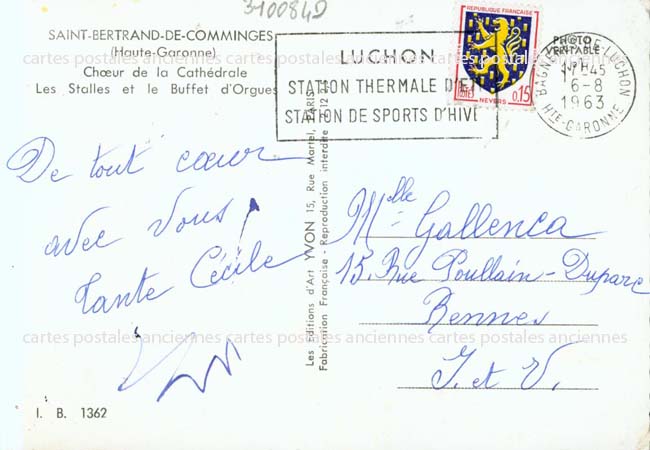 3100849
SAINT-BERTRAND-DE-COMMINGES
(Haute-Garonne)
Chœur de la Cathédrale
Les Stalles et le Buffet d'Orgues
LUCHON
STATION THERMALE D'ÉTÉ
STATION DE SPORTS D'HIVE
REPUBLIQUE FRANÇAISE
POSTES
0,15
NEVERS
PHOTO
VERITABLE
BAGNÈRES-DE-LUCHON
17H45
6-8
1963
HTE-GARONNE
De tout cœur
avec vous !
Tante Cécile
Les Editions d'Art YVON 15, Rue Martel, PARIS
Fabrication Française - Reproduction interdite
Mlle Gallenca
15, Rue Poullain-Duparc
Rennes
I. et V.
cartes postales anciennes cartes postales anciennes cartes postales anciennes
I. B. 1362